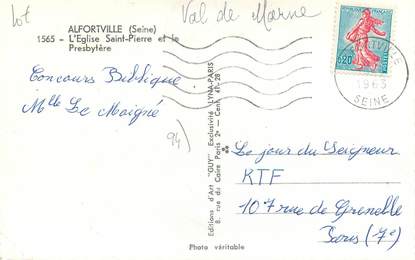 lot
Val de Marne
ALFORTVILLE (Seine)
1565 - L'Eglise Saint-Pierre et le
Presbytère
Concours Biblique
Mlle Le Moigné
94)
Editions d'Art "GUY" Exclusivité LYNA-PARIS
8, rue du Caire Paris 2e - Cent. 41-28
0,20
1963
SEINE
Le jour du Seigneur
KTF
107 rue de Grenelle
Paris (7e)
Photo véritable